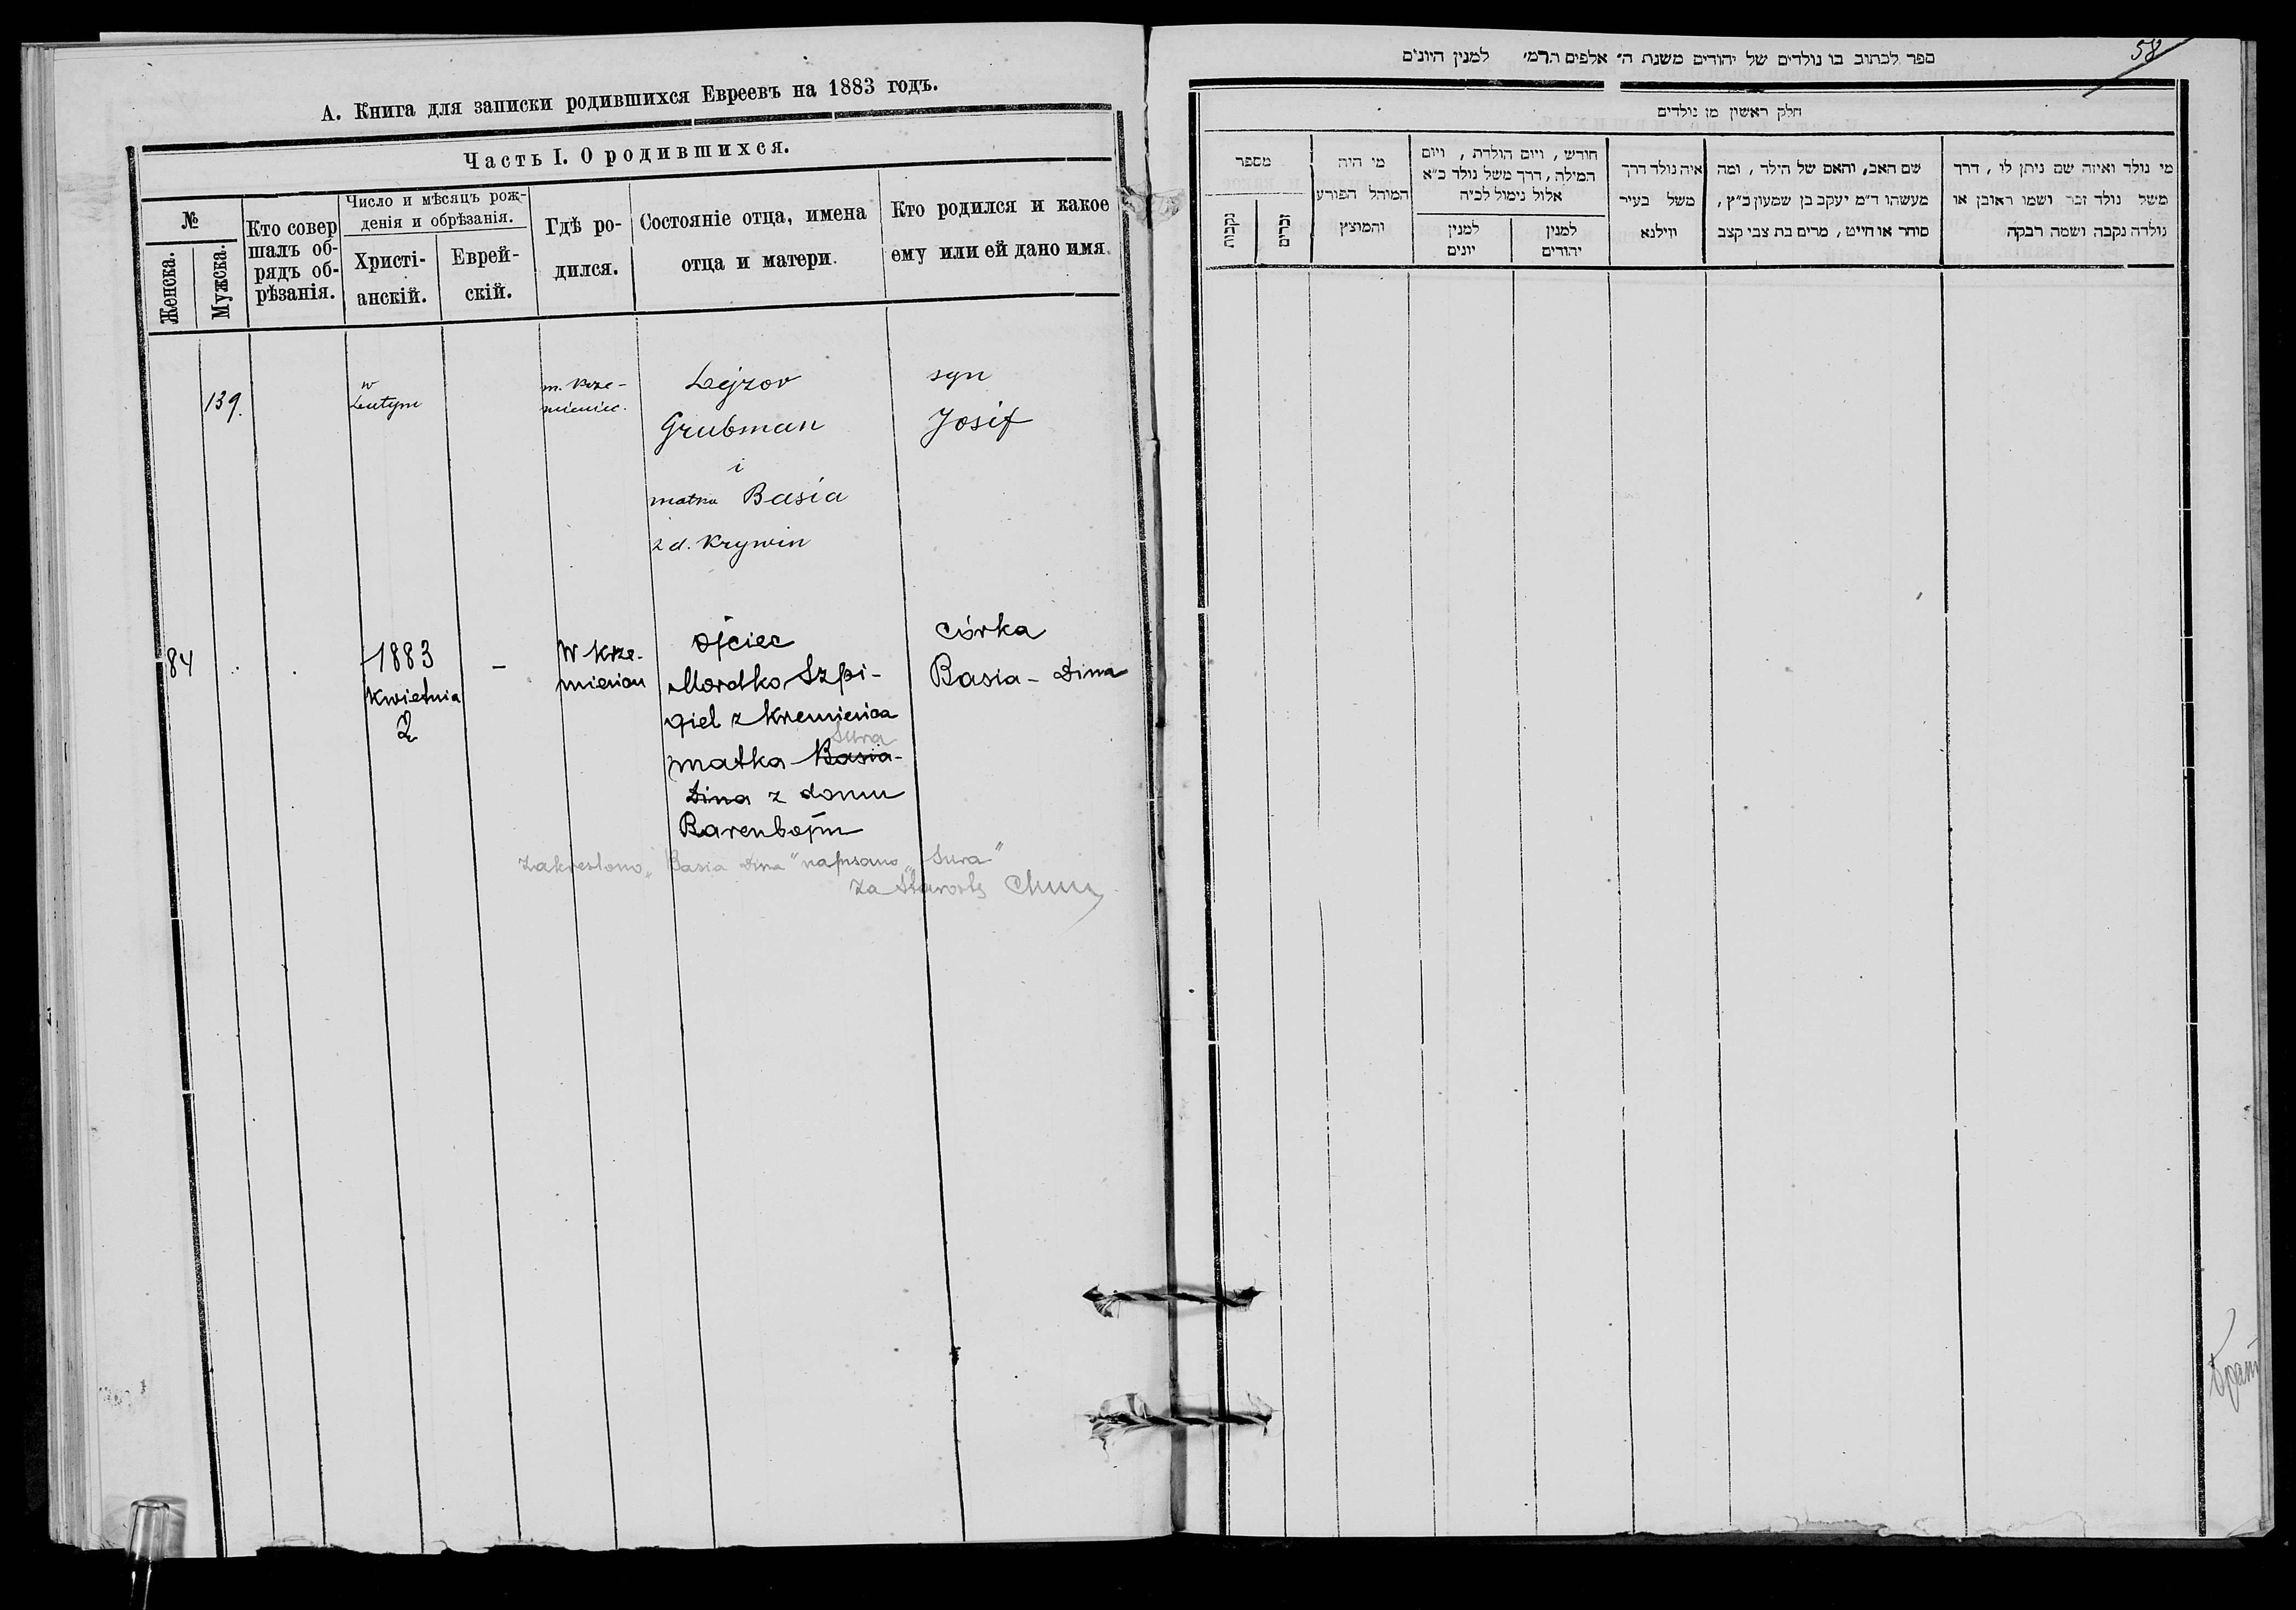 А. Книга для записки родившихся Евреевъ на 1883 годъ.
Часть I. О родившихся.
№
Женска.
Мужска.
Кто совер
шалъ об-
рядъ об-
рѣзанія.
Число и мѣсяцъ рож-
денія и обрѣзанія.
Христі-
анскій.
Еврей-
скій.
Гдѣ ро-
дился.
Состояніе отца, имена
отца и матери.
Кто родился и какое
ему или ей дано имя.
139.
w
Lutym
m. Krze-
mieniec.
Lejzor
Grubman
i
matka Basia
z d. Krywin
syn
Josif
84
1883
Kwietnia
2
-
W Krze-
mienicu
ojciec
Mordko Szpi-
giel z Kremienica
Sura
matka Basia-
Dina z domu
Barenbojm
córka
Basia - Dina
Zakreslono „Basia Dina" napisano „Sura"
Za Starostę
58
ספר לכתוב בו נולדים של יהודים משנת ה׳ אלפים תרמ׳ למנין היונים
חלק ראשון מן נולדים
מספר
נקבות
זכרים
מי היה
המוהל הפורע
והמוצץ
חודש, ויום הולדת, ויום
המילה, דרך משל נולד כ״א
אלול נימול לכ״ה
למנין
יונים
למנין
יהודים
איה נולד דרך
משל בעיר
ווילנא
שם האב, והאם של הילד, ומה
מעשהו ד״מ יעקב בן שמעון כ״ץ,
סוחר או חייט, מרים בת צבי קצב
מי נולד ואיזה שם ניתן לו, דרך
משל נולד זכר ושמו ראובן או
נולדה נקבה ושמה רבקה